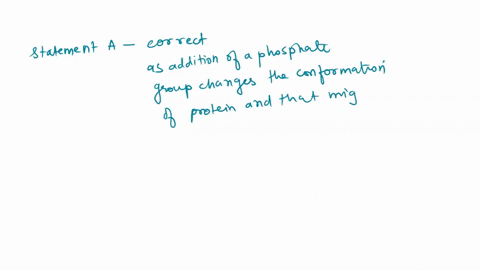 Statement A – correct
as addition of a phosphate
group changes the conformation
of protein and that mig